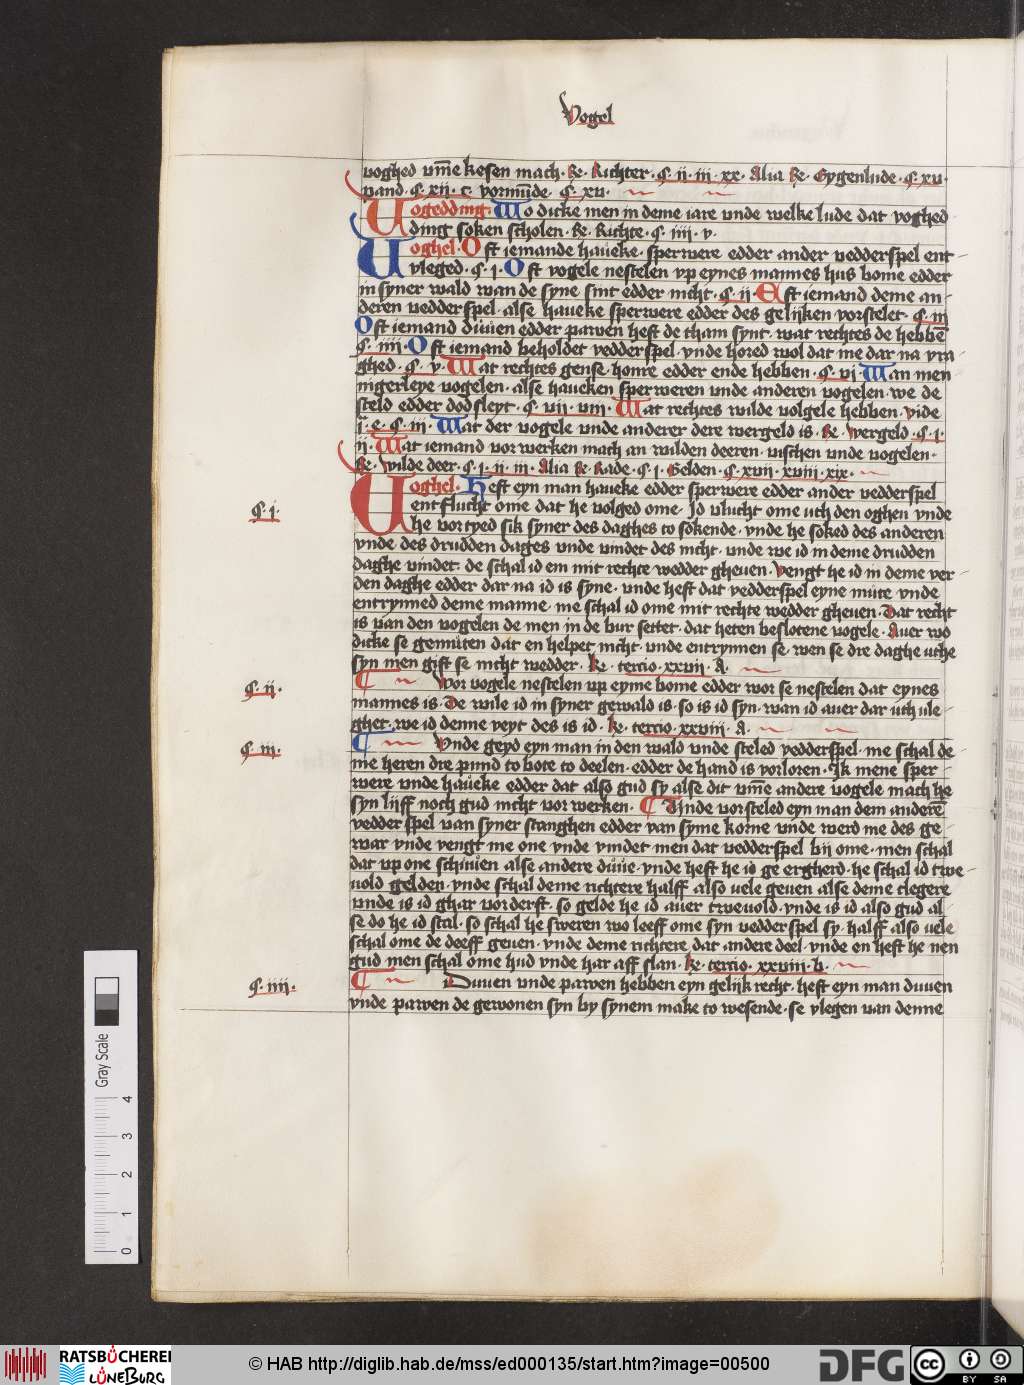 Vogel
voghed vm̄e kesen mach. Re. Richter. ꝯ. ii. iii. xx. Alia Re. Eygenlude. ꝯ. xv.
nand. ꝯ. xii. c. vormūde. ꝯ. xv.
Uogedding. Wo dicke men in deme iare vnde welke lude dat voghed
ding soken scholen. Re. Richte. ꝯ. iiii. v.
Uoghel. Oft iemande haueke. sperwere edder ander vedderspel ent-
vleged. ꝯ. i. Oft vogele nestelen vp eynes mannes hus bome edder
in syner wald wan de syne sint edder nicht. ꝯ. ii. Eft iemand deme an-
deren vedderspel. alse haueke sperwere edder des gelijken vorstelet. ꝯ. iii
Oft iemand duuen edder pawen heft de tham synt. wat rechtes de hebbē
ꝯ. iiii. Oft iemand beholdet vedderspel. vnde hored wol dat me dar na vra-
ghed. ꝯ. v. Wat rechtes gense. honre edder ende hebben. ꝯ. vi. Wan men
nigerleye vogelen. alse haueken sperweren vnde anderen vogelen. we de
steld edder dodsleyt. ꝯ. vii. viii. Wat rechtes wilde volgele hebben. vide
j. e. ꝯ. iii. Wat der vogele vnde anderer dere wergeld is. Re. Wergeld. ꝯ. i.
ii. Wat iemand vorwerken mach an wilden deeren. vischen vnde vogelen.
Re. Wilde deer. ꝯ. i. ii. iii. Alia Re. Rade. ꝯ. i. Gelden. ꝯ. xvii. xviii. xix.
ꝯ. i.
Uoghel. Heft eyn man haueke edder sperwere edder ander vedderspel
entflucht ome dat he volged ome. Id vlucht ome vth den oghen vnde
he vortyed sik syner des daghes to sokende. vnde he soked des anderen
vnde des drudden dages vnde vindet des nicht. vnde we id in deme drudden
daghe vindet. de schal id em mit rechte wedder gheuen. Vengt he id in deme ver-
den daghe edder dar na id is syne. vnde heft dat vedderspel eyne mute vnde
entrynned deme manne. me schal id ome mit rechte wedder gheuen. Dat recht
is van den vogelen de men in de bur settet. dat heten beslotene vogele. Auer wo
dicke se gemuten dat en helpet nicht. vnde entrynnen se. wen se dre daghe vthe
syn men gift se nicht wedder. Re. tercio. xxvii. A.
ꝯ. ii.
Wor vogele nestelen vp eyme bome edder wor se nestelen dat eynes
mannes is. De wile id in syner gewald is. so is id syn. wan id auer dar vth vle-
ghet. we id denne veyt des is id. Re. tercio. xxviii. A.
ꝯ. iii.
Vnde geyd eyn man in den wald vnde steled vedderspel. me schal de-
me heren dre pund to bote to deelen. edder de hand is vorloren. Ik mene sper-
were vnde haueke edder dat also gud sy alse dit vm̄e andere vogele mach he
syn lijff noch gud nicht vorwerken. Vnde vorsteled eyn man dem anderē
vedderspel van syner stanghen edder van syme korne vnde werd me des ge-
war vnde vengt me one vnde vindet men dat vedderspel bij ome. men schal
dat vp one schuuen alse andere duue. vnde heft he id ge ergherd. he schal id twe-
uold gelden. vnde schal deme richtere halff also vele geuen alse deme clegere
vnde is id ghar vorderft. so gelde he id auer tweuold. vnde is id also gud al-
se do he id stal. so schal he sweren wo leeff ome syn vedderspel sy. halff also vele
schal ome de deeff geuen. vnde deme richtere dat andere deel. vnde en heft he nen
gud men schal ome hud vnde har aff slan. Re. tercio. xxviii. b.
ꝯ. iiii.
Duuen vnde pawen hebben eyn gelijk recht. heft eyn man duuen
vnde pawen de gewonen syn by synem make to wesende. se vlegen van denne
Gray Scale
0 1 2 3 4
RATSBÜCHEREI LÜNEBURG
© HAB http://diglib.hab.de/mss/ed000135/start.htm?image=00500
DFG
cc BY SA